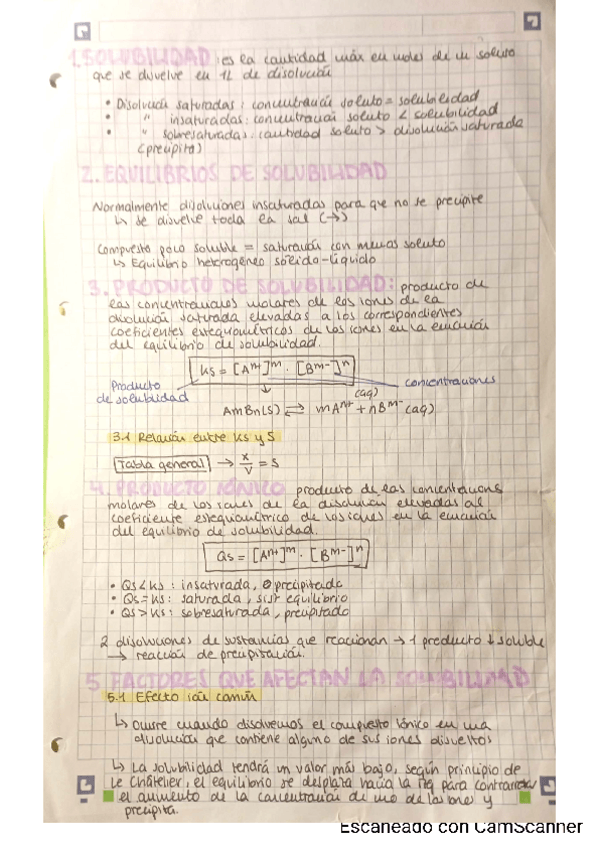 1. SOLUBILIDAD : es la cantidad máx en moles de un soluto
que se disuelve en 1L de disolución
• Disolución saturadas : concentración soluto = solubilidad
• " insaturadas : concentración soluto < solubilidad
• " sobresaturadas : cantidad soluto > disolución saturada
(precipita)
2. EQUILIBRIOS DE SOLUBILIDAD
Normalmente disoluciones insaturadas para que no se precipite
↳ se disuelve toda la sal (→)
Compuesto poco soluble = saturación con menos soluto
↳ Equilibrio heterogéneo sólido-líquido
3. PRODUCTO DE SOLUBILIDAD: producto de
las concentraciones molares de los iones de la
disolución saturada elevadas a los correspondientes
coeficientes estequiométricos de los iones en la ecuación
del equilibrio de solubilidad.
Ks = [Aⁿ⁺]ᵐ · [Bᵐ⁻]ⁿ
Producto
de solubilidad
concentraciones
↓
AmBn(s) ⇄ mAⁿ⁺ (aq) + nBᵐ⁻ (aq)
3.1 Relación entre Ks y S
Tabla general → x/V = S
4. PRODUCTO IÓNICO producto de las concentracions
molares de los iones de la disolución elevadas al
coeficiente estequiométrico de los iones en la ecuación
del equilibrio de solubilidad.
Qs = [Aⁿ⁺]ᵐ · [Bᵐ⁻]ⁿ
• Qs < Ks : insaturada, precipitado
• Qs = Ks : saturada, sist equilibrio
• Qs > Ks : sobresaturada, precipitado
2 disoluciones de sustancias que reaccionan → 1 producto ↓ soluble
→ reacción de precipitación.
5 FACTORES QUE AFECTAN LA SOLUBILIDAD
5.1 Efecto ión común
↳ Ocurre cuando disolvemos el compuesto iónico en una
disolución que contiene alguno de sus iones disueltos
↳ La solubilidad tendrá un valor más bajo, según principio de
Le Châtelier, el equilibrio se desplaza hacia la izq para contrarrestar
el aumento de la concentración de uno de los iones y
precipita.
Escaneado con CamScanner